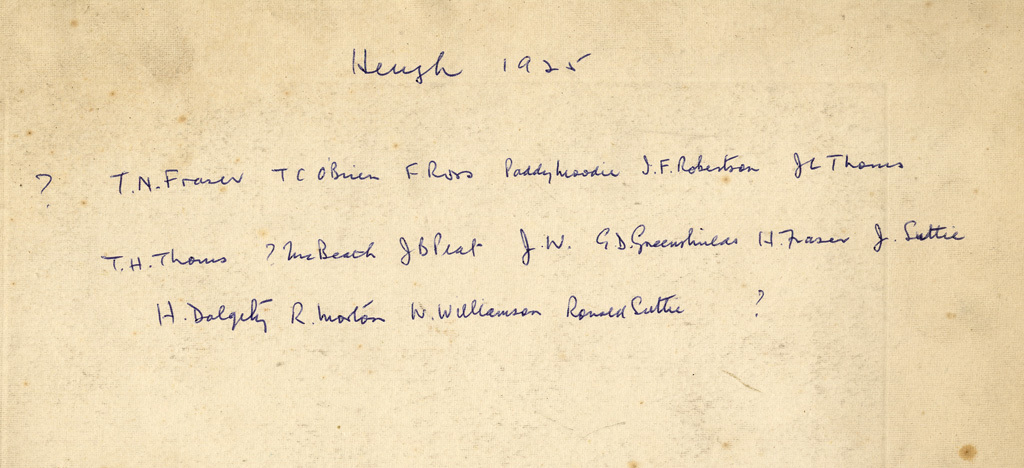 Heugh 1925
? T.N. Fraser T C O'Brien F Ross Paddy Moodie J.F. Robertson J L Thoms
T.H. Thoms ? McBeath J B Peat J.W. G.D. Greenshields H. Fraser J. Suttie
H. Dalgety R. Morton W. Williamson Ronald Suttie ?